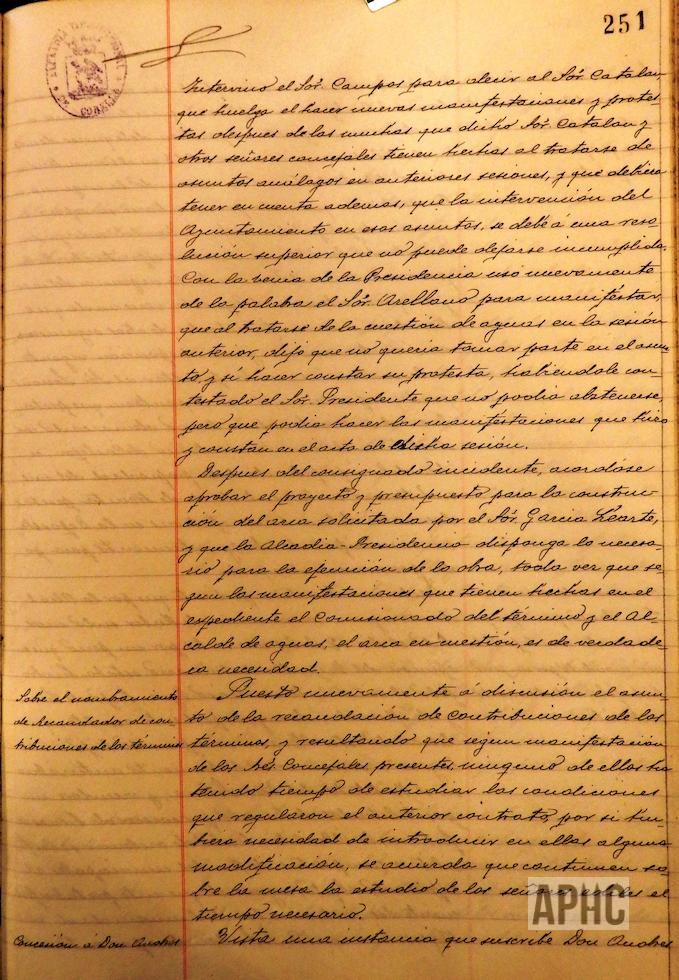 251
Intervino el Sór. Campos para decir al Sór. Catalan,
que huelga el hacer nuevas manifestaciones y protes-
tas despues de las muchas que dicho Sór. Catalan y
otros señores concejales tienen hechas al tratarse de
asuntos análogos en anteriores sesiones, y que debiera
tener en cuenta además, que la intervención del
Ayuntamiento en esos asuntos, se debe á una reso-
lución superior que no puede dejarse incumplida.
Con la venia de la Presidencia usó nuevamente
de la palabra el Sór. Arellano para manifestar,
que al tratarse de la cuestión de aguas en la sesión
anterior, dijo que no queria tomar parte en el asun-
to y si hacer constar su protesta, habiendole con-
testado el Sór. Presidente que no podia abstenerse,
pero que podia hacer las manifestaciones que hizo
y constan en el acta de dicha sesión.
Despues del consignado incidente, acordóse
aprobar el proyecto y presupuesto para la construc-
ción del arca solicitada por el Sór. Garcia Learte,
y que la Alcadia-Presidencia disponga lo necesa-
rio para la ejecución de la obra, toda vez que se-
gun las manifestaciones que tienen hechas en el
expediente el Comisionado del término y el Al-
calde de aguas, el arca en cuestión, es de verdade-
ra necesidad.
Sobre el nombramiento
de Recaudador de con-
tribuciones de los términos
Puesto nuevamente á discusión el asun-
to de la recaudación de contribuciones de los
términos, y resultando que segun manifestación
de los Sres. Concejales presentes, ninguno de ellos ha
tenido tiempo de estudiar las condiciones
que regularon el anterior contrato, por si hu-
biera necesidad de introducir en ellas alguna
modificación, se acuerda que continuen so-
bre la mesa la estudio de los señores el
tiempo necesario.
Concesión á Don Andres
Vista una instancia que suscribe Don Andres
APHC